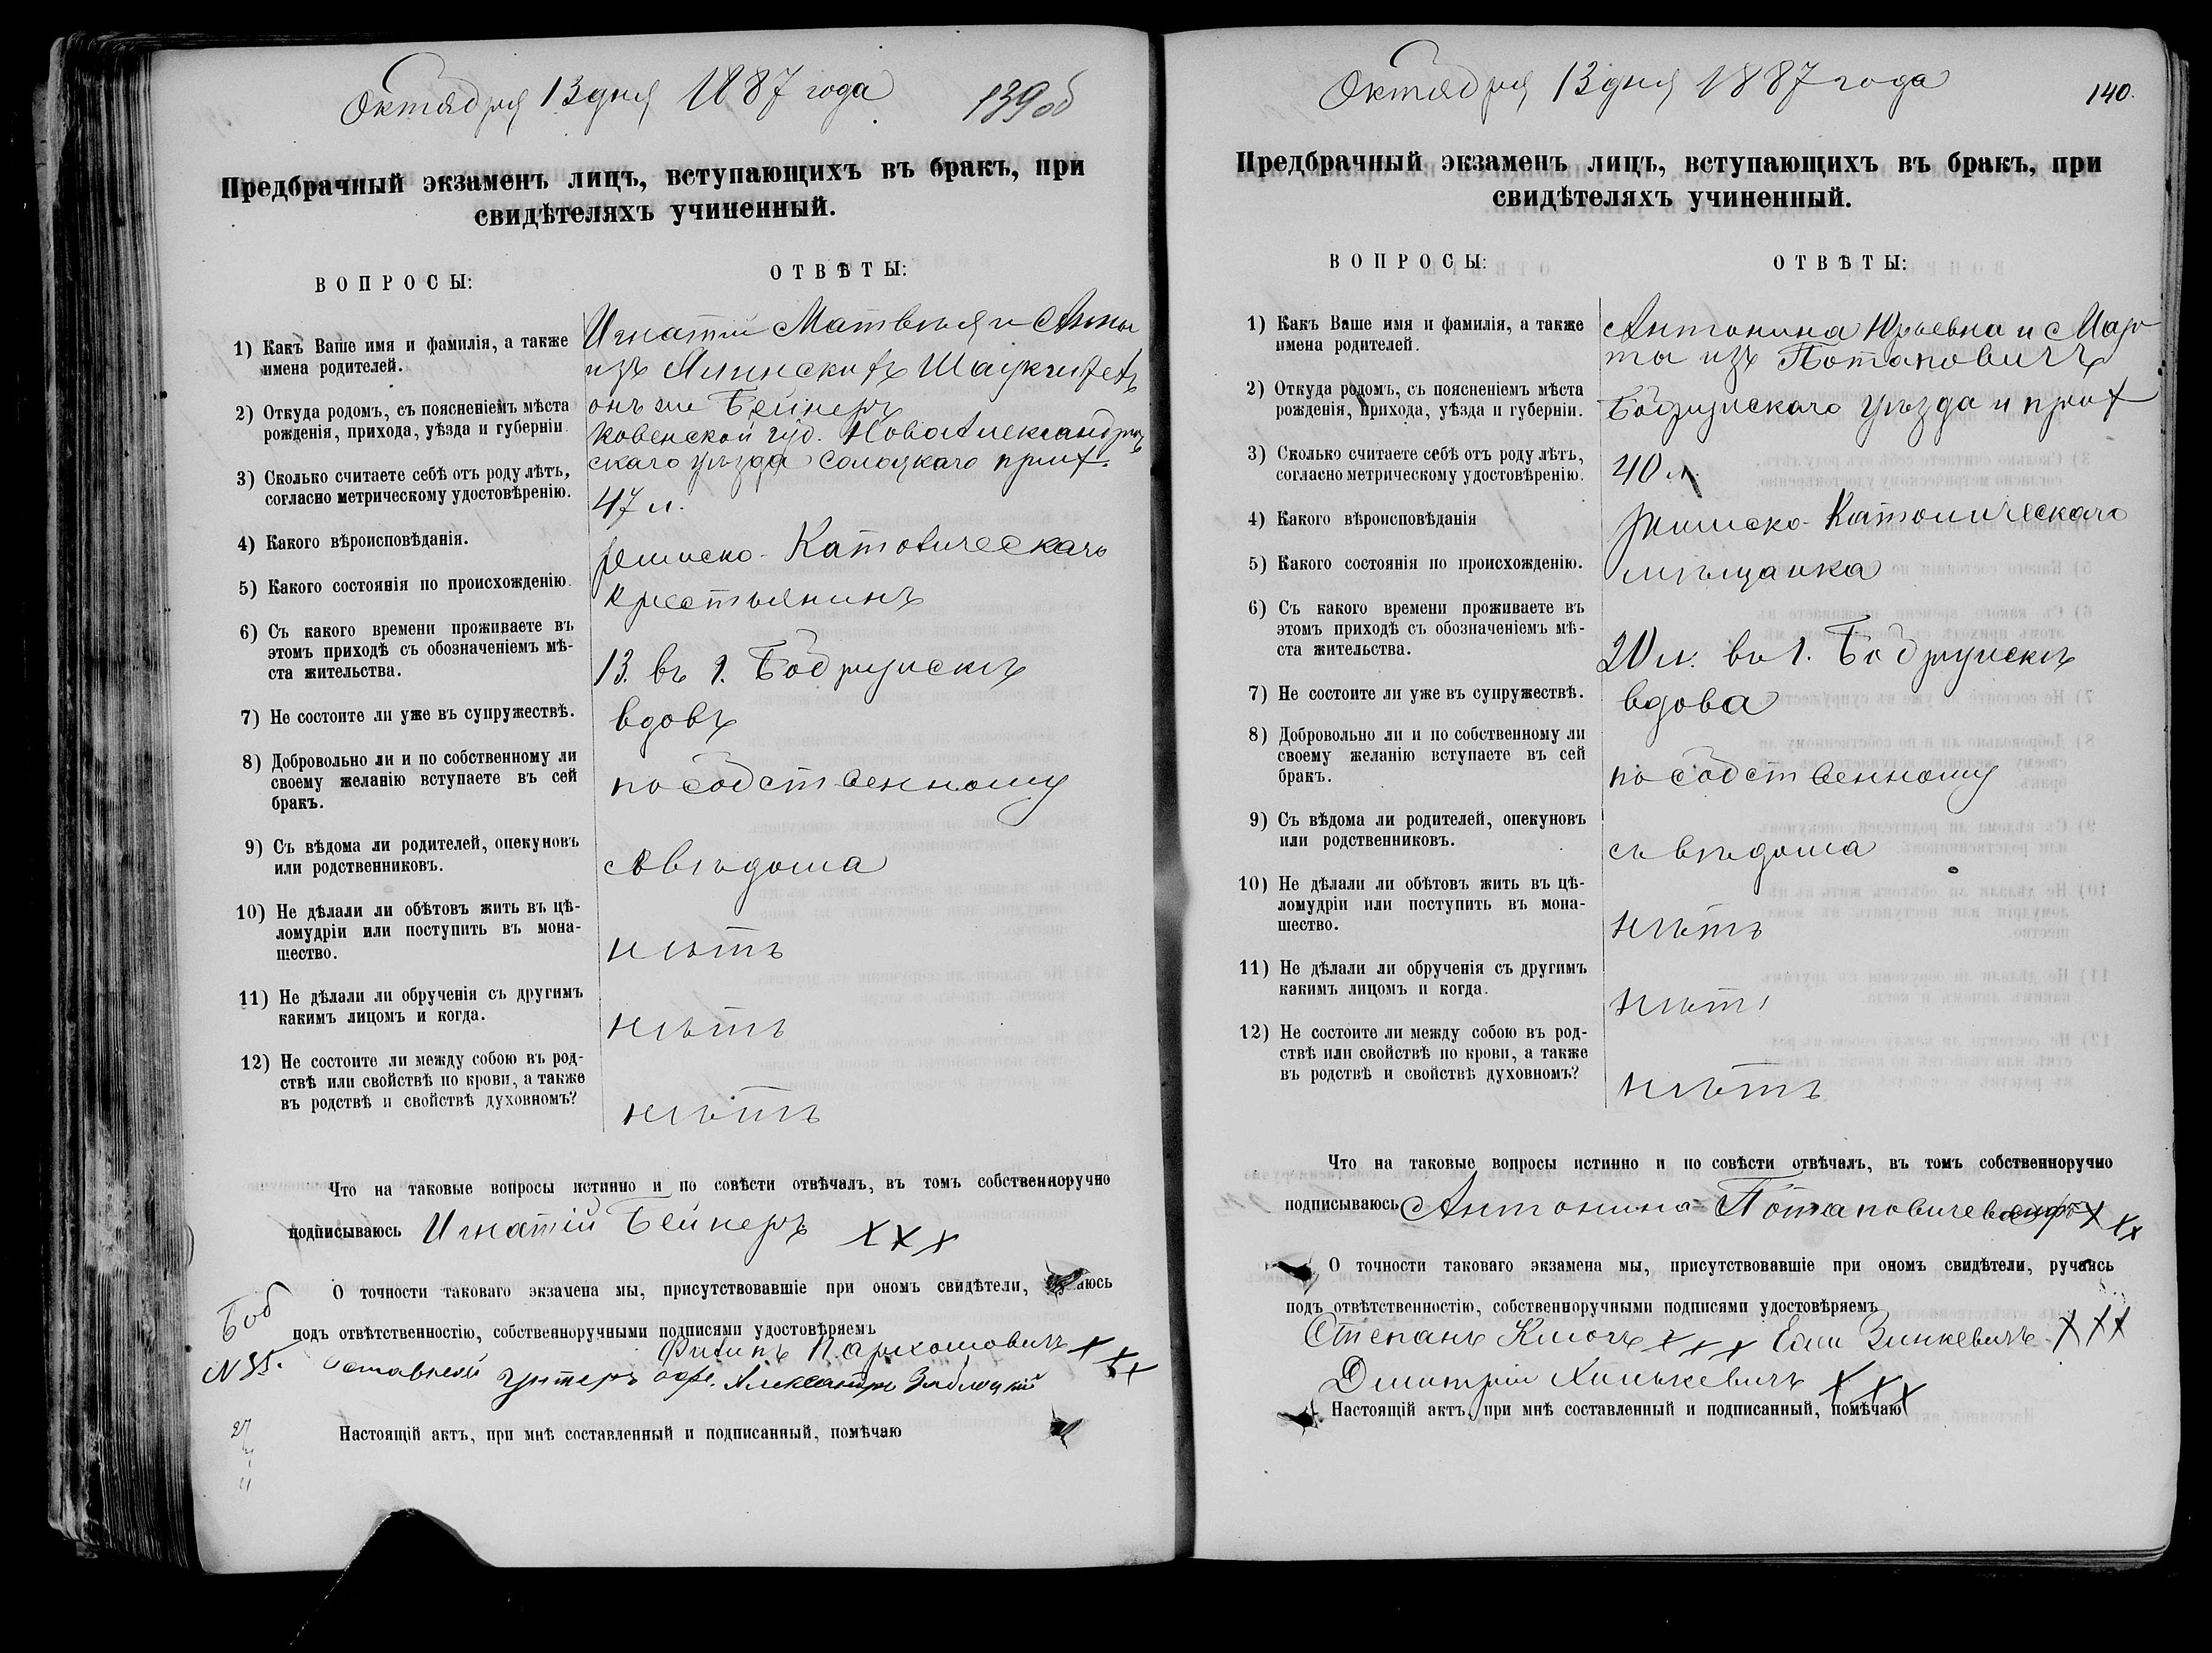 Октября 13 дня 1887 года
139 об
Предбрачный экзаменъ лицъ, вступающихъ въ бракъ, при
свидѣтеляхъ учиненный.
ВОПРОСЫ:
ОТВѢТЫ:
1) Какъ Ваше имя и фамилія, а также
имена родителей.
2) Откуда родомъ, съ поясненіемъ мѣста
рожденія, прихода, уѣзда и губерніи.
3) Сколько считаете себѣ отъ роду лѣтъ,
согласно метрическому удостовѣренію.
4) Какого вѣроисповѣданія.
5) Какого состоянія по происхожденію.
6) Съ какого времени проживаете въ
этомъ приходѣ съ обозначеніемъ мѣ-
ста жительства.
7) Не состоите ли уже въ супружествѣ.
8) Добровольно ли и по собственному ли
своему желанію вступаете въ сей
бракъ.
9) Съ вѣдома ли родителей, опекуновъ
или родственниковъ.
10) Не дѣлали ли обѣтовъ жить въ цѣ-
ломудріи или поступить въ мона-
шество.
11) Не дѣлали ли обрученія съ другимъ
какимъ лицомъ и когда.
12) Не состоите ли между собою въ род-
ствѣ или свойствѣ по крови, а также
въ родствѣ и свойствѣ духовномъ?
Игнатій Матвѣя и Анны
изъ
онъ же Бейнеръ
Ковенской губ. Новоалександров
скаго уѣзда солоцкаго прих.
47 л.
римско-Католическаго
крестьянинъ
13. въ г. Бобруискѣ
вдовъ
по собственному
съ вѣдома
нѣтъ
нѣтъ
нѣтъ
Что на таковые вопросы истинно и по совѣсти отвѣчалъ, въ томъ собственноручно
подписываюсь Игнатій Бейнеръ ХХХ
О точности таковаго экзамена мы, присутствовавшіе при ономъ свидѣтели, аюсь
подъ отвѣтственностію, собственноручными подписями удостовѣряемъ
Филипъ Пархомовичъ ХХХ
Боб
N 35.
унтеръ офи. Александръ Заблоцкій
Настоящій актъ, при мнѣ составленный и подписанный, помѣчаю
Октября 13 дня 1887 года
140.
Предбрачный экзаменъ лицъ, вступающихъ въ бракъ, при
свидѣтеляхъ учиненный.
ВОПРОСЫ:
ОТВѢТЫ:
1) Какъ Ваше имя и фамилія, а также
имена родителей.
2) Откуда родомъ, съ поясненіемъ мѣста
рожденія, прихода, уѣзда и губерніи.
3) Сколько считаете себѣ отъ роду лѣтъ,
согласно метрическому удостовѣренію.
4) Какого вѣроисповѣданія
5) Какого состоянія по происхожденію.
6) Съ какого времени проживаете въ
этомъ приходѣ съ обозначеніемъ мѣ-
ста жительства.
7) Не состоите ли уже въ супружествѣ.
8) Добровольно ли и по собственному ли
своему желанію вступаете въ сей
бракъ.
9) Съ вѣдома ли родителей, опекуновъ
или родственниковъ.
10) Не дѣлали ли обѣтовъ жить въ цѣ-
ломудріи или поступить въ мона-
шество.
11) Не дѣлали ли обрученія съ другимъ
какимъ лицомъ и когда.
12) Не состоите ли между собою въ род-
ствѣ или свойствѣ по крови, а также
въ родствѣ и свойствѣ духовномъ?
Антонина Юрьевна и Мар
ты изъ Потаповичъ
Бобруискаго уѣзда и прих
40 л.
римско-Католическаго
мѣщанка
20 л. въ г. Бобруискѣ
вдова
по собственному
съ вѣдома
нѣтъ
нѣтъ
нѣтъ
Что на таковые вопросы истинно и по совѣсти отвѣчалъ, въ томъ собственноручно
подписываюсь Антонина Потаповичева ХХХ
О точности таковаго экзамена мы, присутствовавшіе при ономъ свидѣтели, ручаясь
подъ отвѣтственностію, собственноручными подписями удостовѣряемъ
Степанъ Ключъ ХХХ Зинкевичъ ХХХ
Дмитрій Хилькевичъ ХХХ
Настоящій актъ при мнѣ составленный и подписанный, помѣчаю